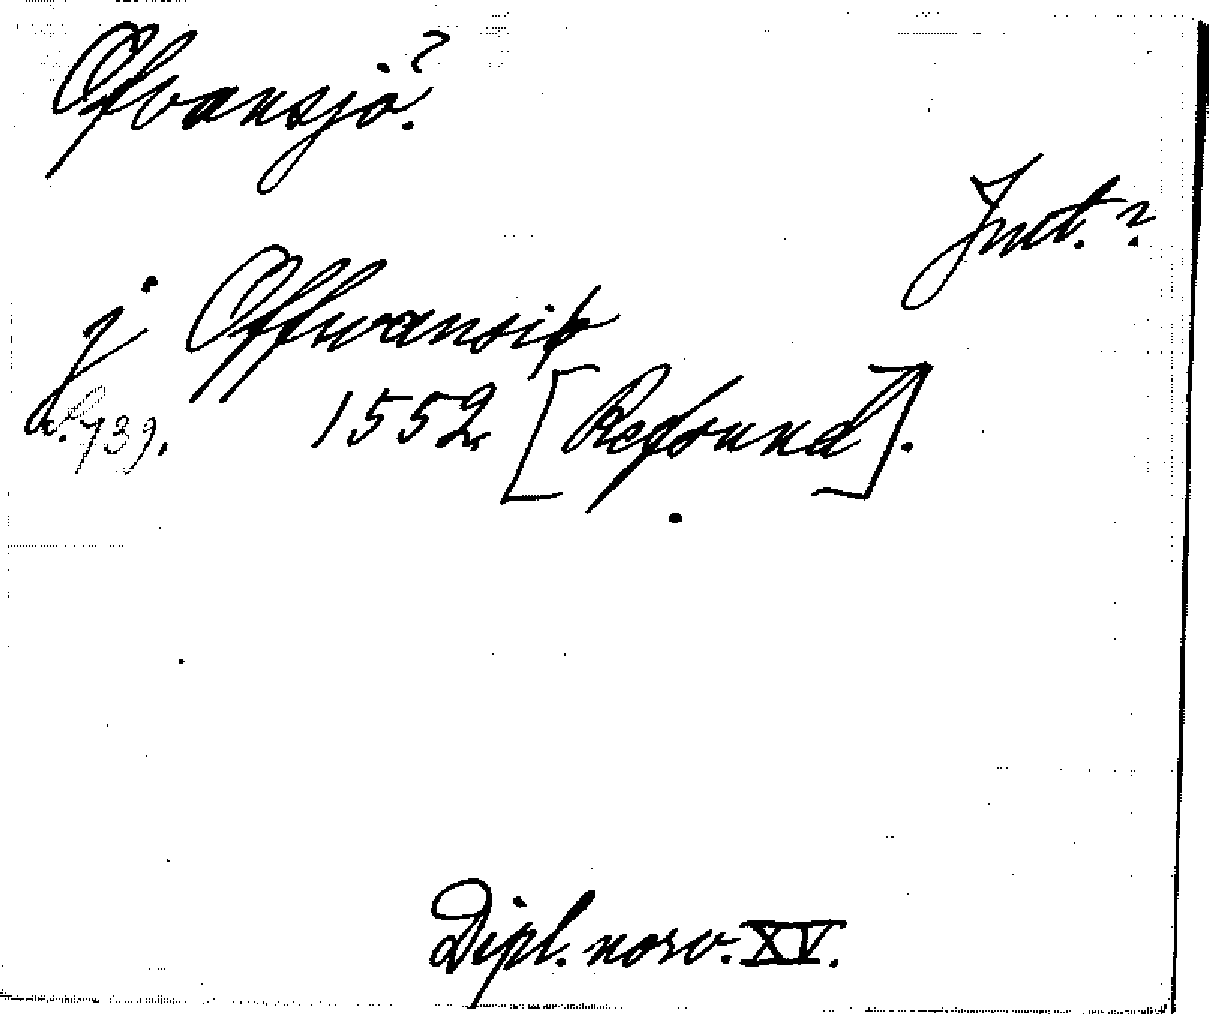 Ofvansjö?
Jmt.?
j Offwansiø
s. 739. 1552. [Refsund].
Dipl. norv. XV.